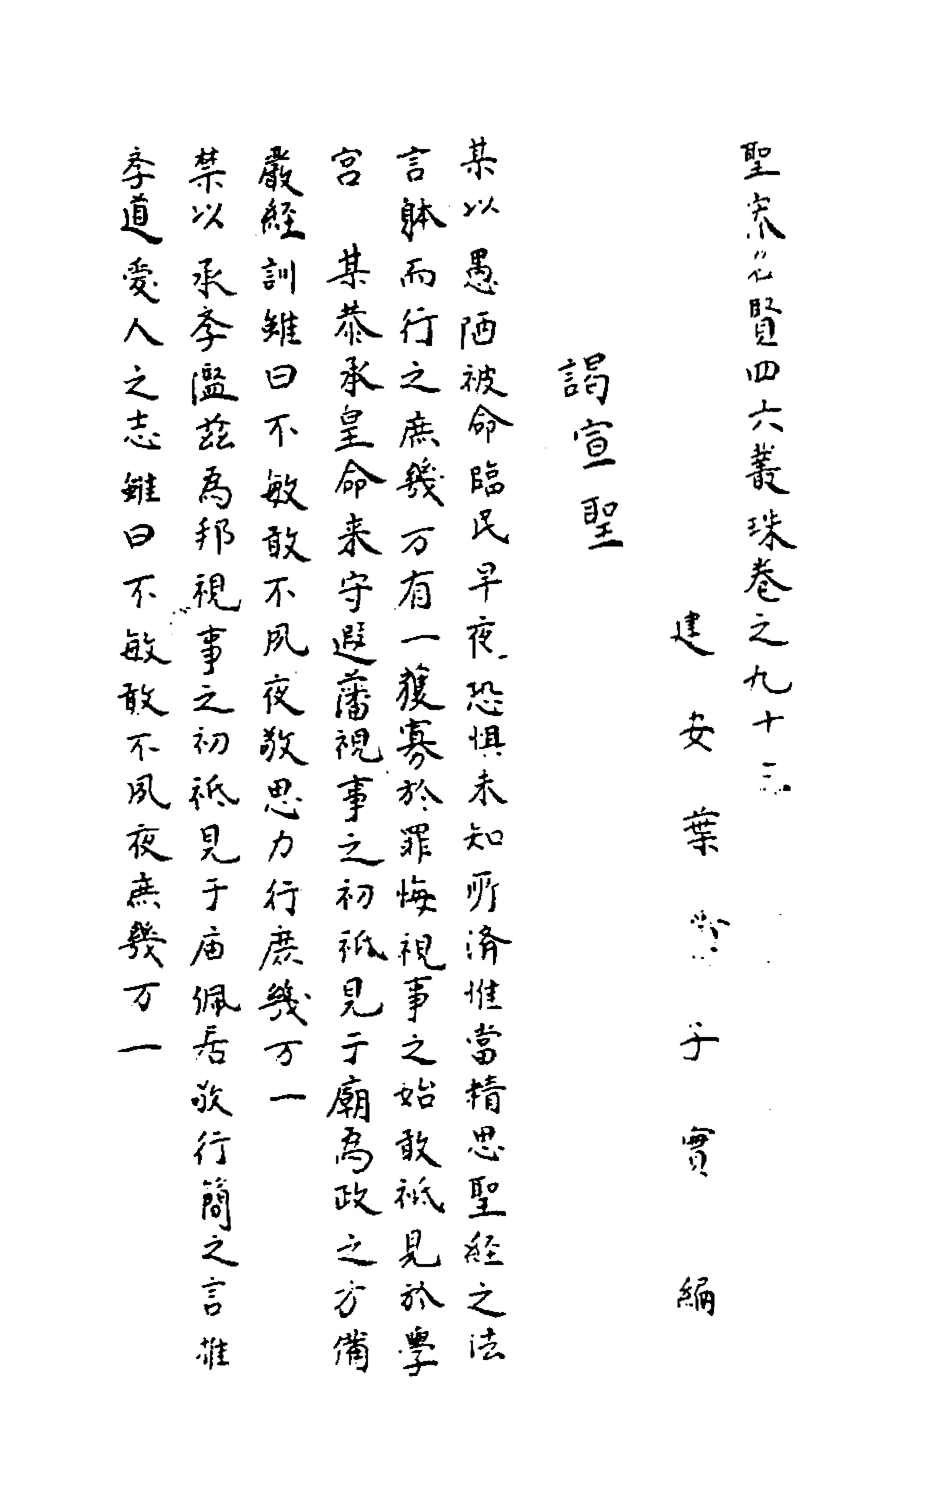 聖宋賢四六叢珠卷之九十三
建安葉子實編
謁宣聖
某以愚陋被命臨民早夜恐惧未知所済惟當精思聖経之法
言躰而行之庶幾万有一獲寡於罪悔視事之始敢祗見於學
宫 某恭承皇命来守遐藩視事之初祗見于廟為政之方備
嚴経訓雖曰不敏敢不夙夜敬思力行庶幾万一
禁以承李濫茲為邦視事之初祗見于庙佩居敬行簡之言推
李道愛人之志雖曰不敏敢不夙夜庶幾万一